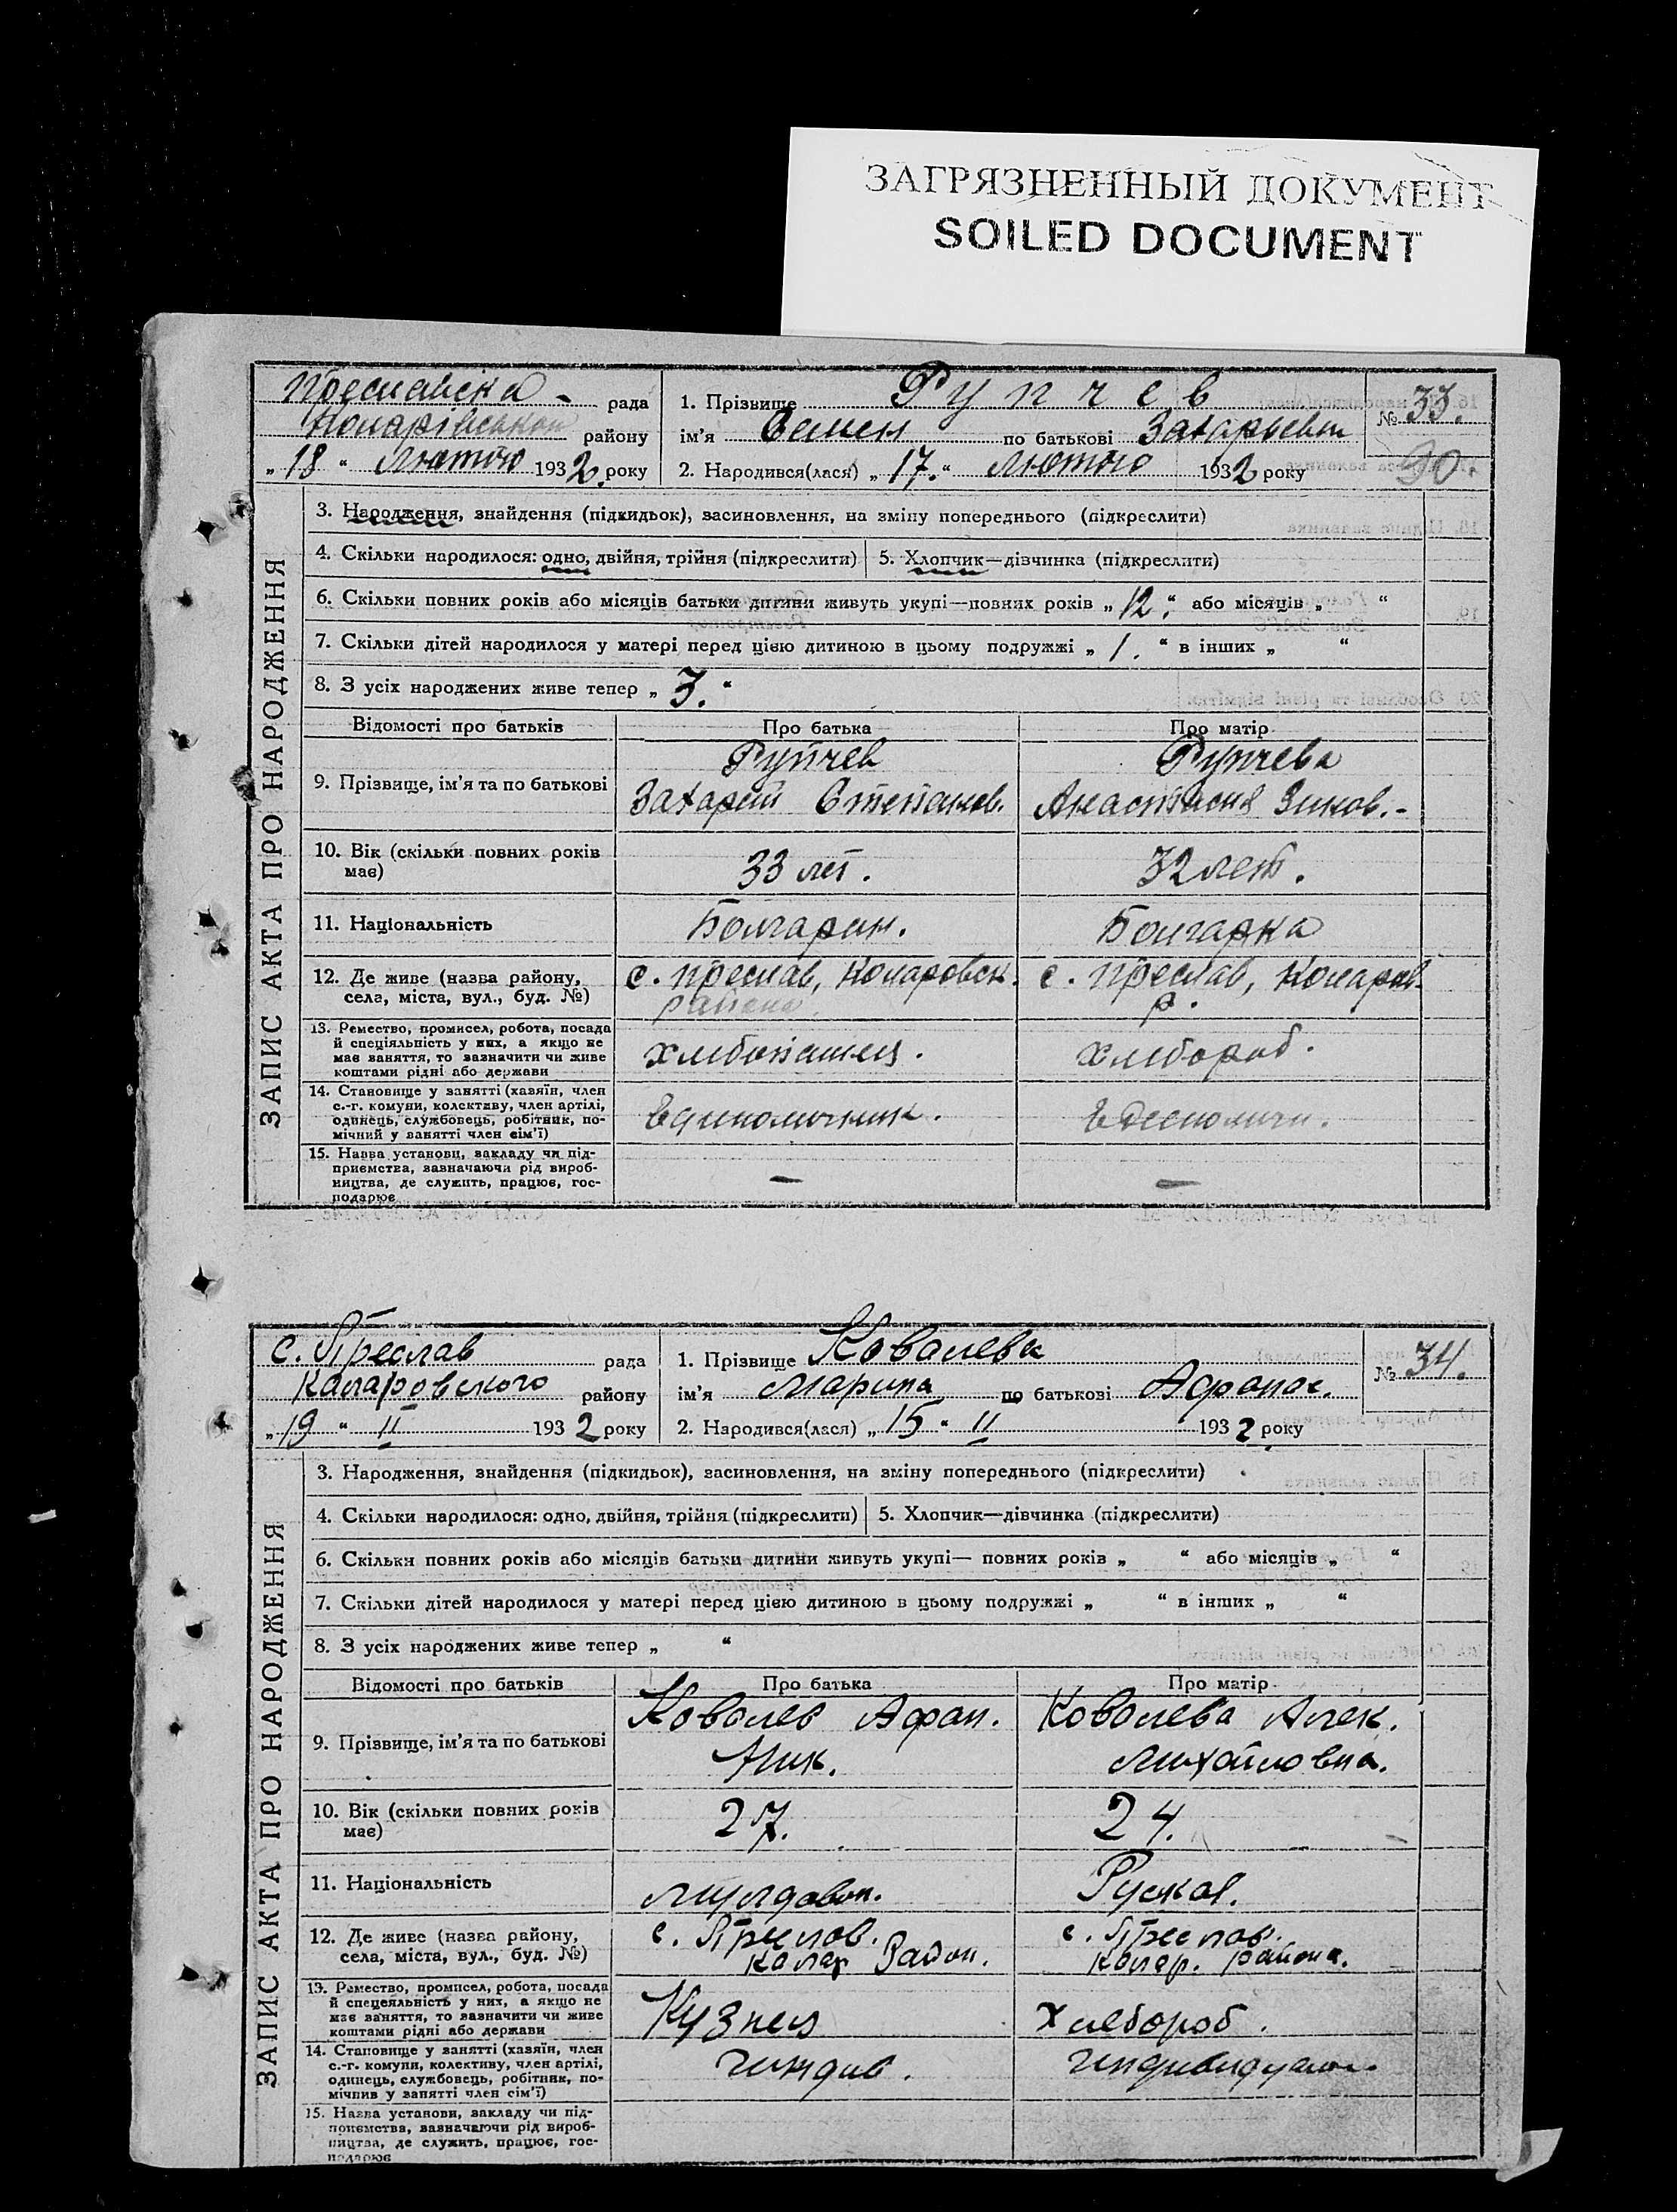 ЗАГРЯЗНЕННЫЙ ДОКУМЕНТ
SOILED DOCUMENT
ЗАПИС АКТА ПРО НАРОДЖЕННЯ
рада
району
„ 18 “ Лютого 1932. року
1. Прізвище Рупчев
ім’я Семен по батькові Захарьевич
2. Народився(лася) „ 17. “ Лютого 1932 року
№ 33.
90.
3. Народження, знайдення (підкидьок), засиновлення, на зміну попереднього (підкреслити)
4. Скільки народилося: одно, двійня, трійня (підкреслити)
5. Хлопчик—дівчинка (підкреслити)
6. Скільки повних років або місяців батьки дитини живуть укупі—повних років „ 12. “ або місяців „ “
7. Скільки дітей народилося у матері перед цією дитиною в цьому подружжі „ 1. “ в інших „ “
8. З усіх народжених живе тепер „ 3. “
Відомості про батьків
Про батька
Про матір
9. Прізвище, ім’я та по батькові
Рупчев
Захарий Степанов.
Рупчева
Анастасия Зинов.-
10. Вік (скільки повних років
має)
33 лет.
32 лет.
11. Національність
Болгарин.
Болгарка
12. Де живе (назва району,
села, міста, вул., буд. №)
с. Преслав, Коларовск.
района.
с. Преслав, Коларов.
р.
13. Ремество, промисел, робота, посада
й спеціяльність у них, а якщо не
має заняття, то зазначити чи живе
коштами рідні або держави
хлебопашец.
хлебороб.
14. Становище у занятті (хазяїн, член
с.-г. комуни, колективу, член артілі,
одинець, службовець, робітник, по-
мічний у занятті член сім’ї)
15. Назва установи, закладу чи під-
приємства, зазначаючи рід вироб-
ництва, де служить, працює, гос-
подарює
—
—
ЗАПИС АКТА ПРО НАРОДЖЕННЯ
с. Преслав рада
Коларовского району
„ 19 “ II 1932 року
1. Прізвище Ковалева
ім’я Марина по батькові Афанас.
2. Народився(лася) „ 15 “ II 1932 року
№ 34.
3. Народження, знайдення (підкидьок), засиновлення, на зміну попереднього (підкреслити)
4. Скільки народилося: одно, двійня, трійня (підкреслити)
5. Хлопчик—дівчинка (підкреслити)
6. Скільки повних років або місяців батьки дитини живуть укупі— повних років „ “ або місяців „ “
7. Скільки дітей народилося у матері перед цією дитиною в цьому подружжі „ “ в інших „ “
8. З усіх народжених живе тепер „ “
Відомості про батьків
Про батька
Про матір
9. Прізвище, ім’я та по батькові
Ковалев Афан.
Ник.
Ковалева Алек.
Михайловна.
10. Вік (скільки повних років
має)
27.
24.
11. Національність
Руская.
12. Де живе (назва району,
села, міста, вул., буд. №)
с. Преслав.
Колар. Район.
с. Преслав.
Колар. района.
13. Ремество, промисел, робота, посада
й спецеяльність у них, а якщо не
має заняття, то зазначити чи живе
коштами рідні або держави
Кузнец
хлебороб.
14. Становище у занятті (хазяїн, член
с.-г. комуни, колективу, член артілі,
одинець, службовець, робітник, по-
мічнив у занятті член сім’ї)
15. Назва установи, закладу чи під-
приємства, вазначаючи рід вироб-
ництва, де служить, працює, гос-
подарює